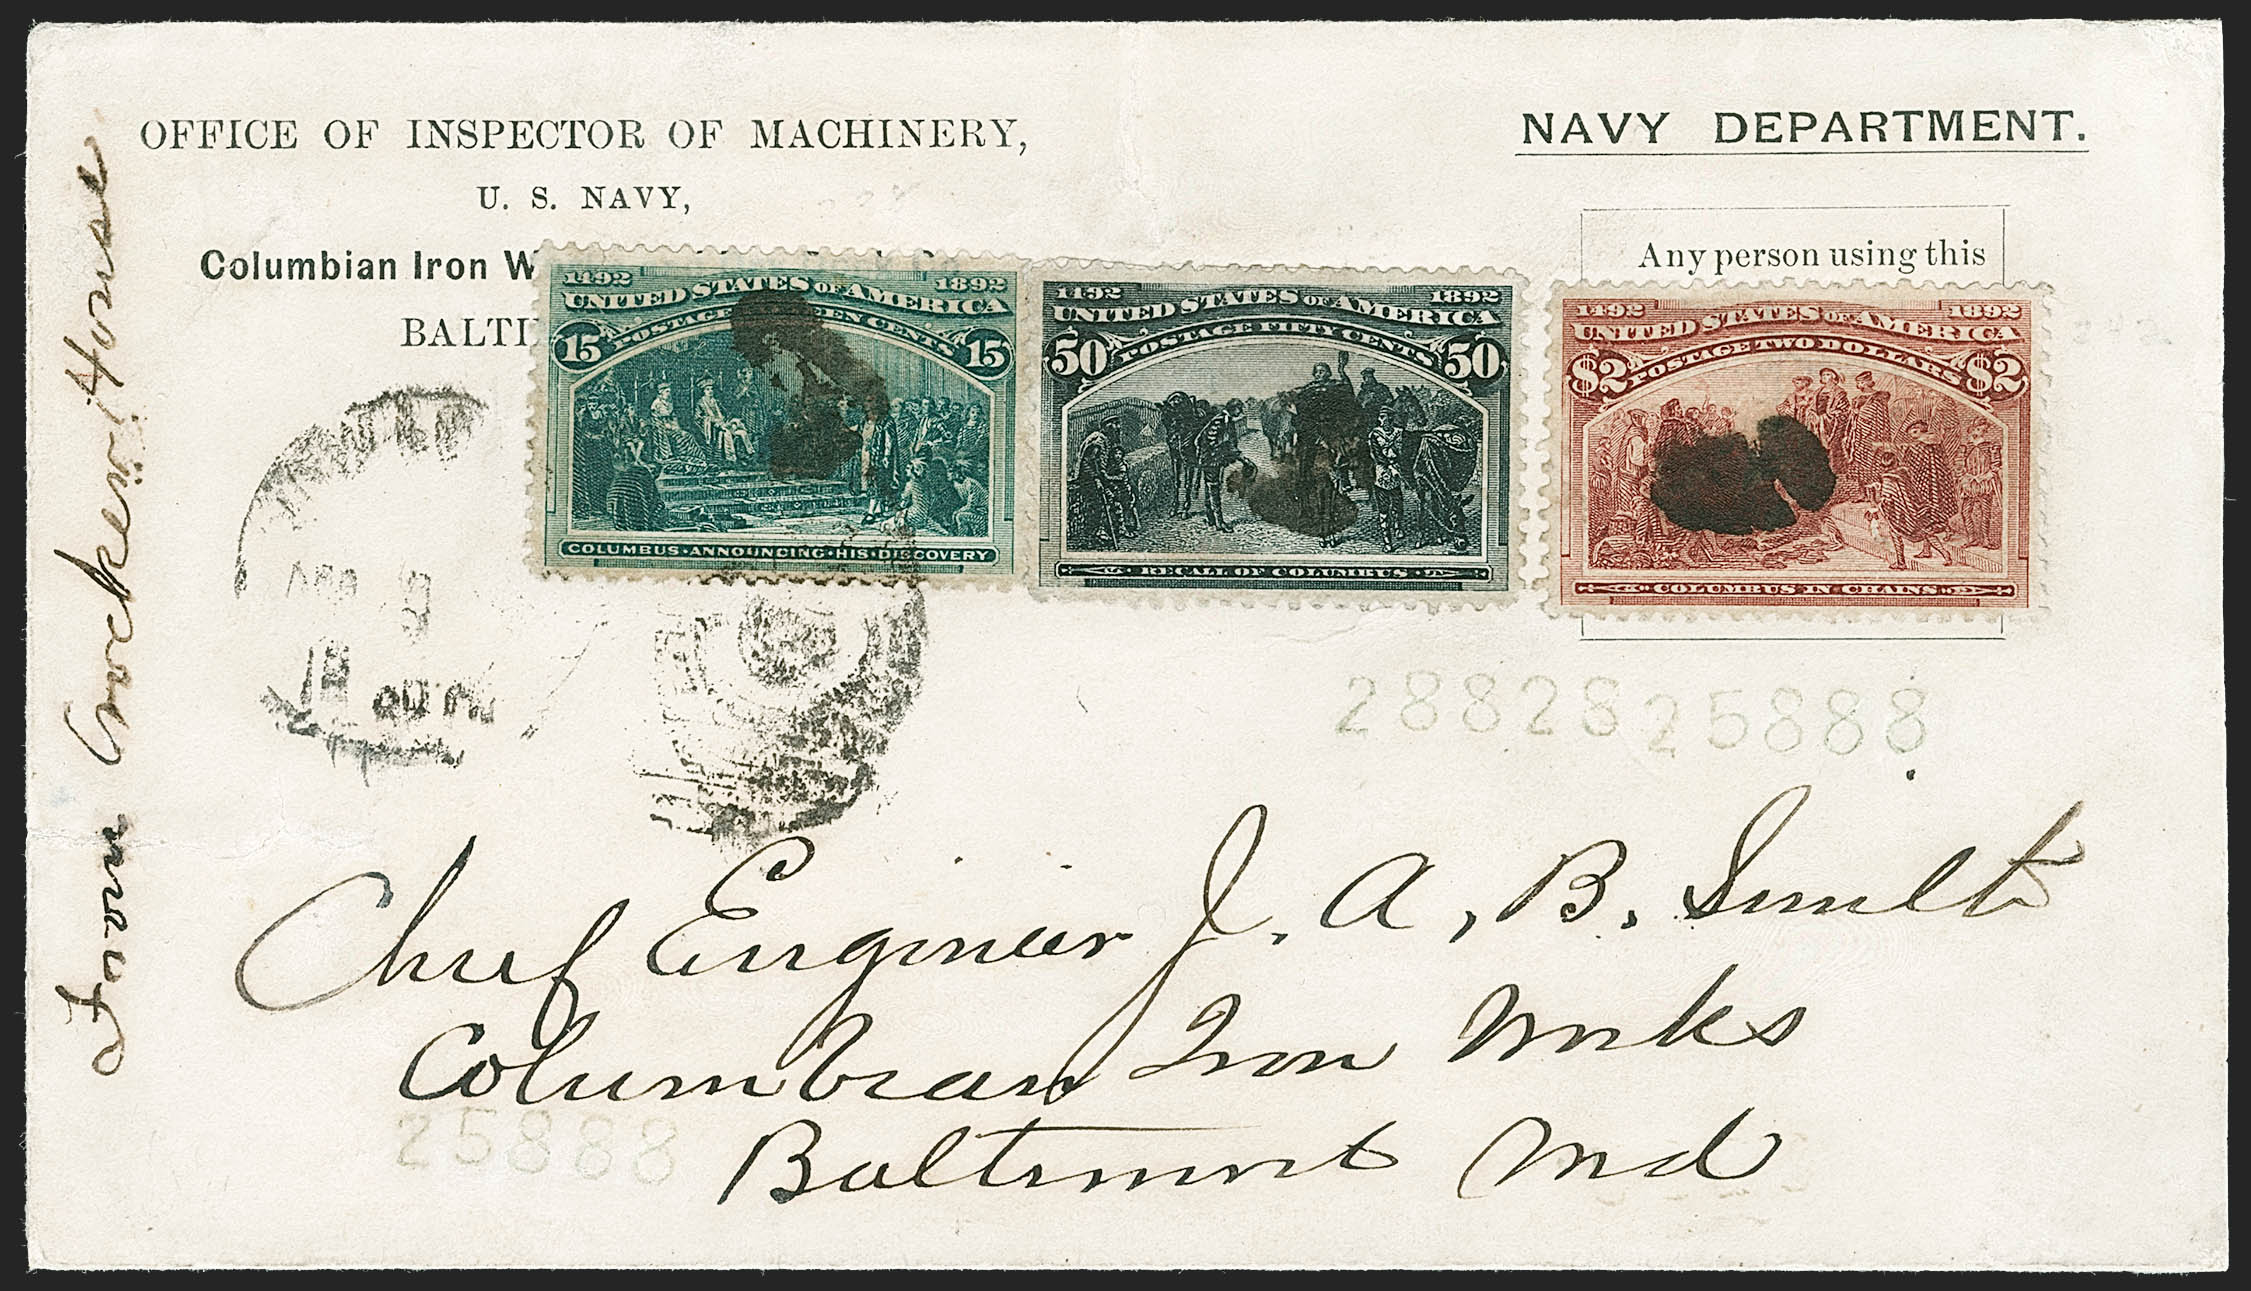 OFFICE OF INSPECTOR OF MACHINERY,
U. S. NAVY,
Columbian Iron W
BALTI
NAVY DEPARTMENT.
Any person using this
1492 1892
UNITED STATES OF AMERICA
POSTAGE FIFTEEN CENTS
15 15
COLUMBUS ANNOUNCING HIS DISCOVERY
1492 1892
UNITED STATES OF AMERICA
POSTAGE FIFTY CENTS
50 50
RECALL OF COLUMBUS
1492 1892
UNITED STATES OF AMERICA
POSTAGE TWO DOLLARS
$2 $2
COLUMBUS IN CHAINS
From Crocker House
28828 25888
Chief Engineer J. A. B. Smith
Columbian Iron Works
Baltimore Md
25888